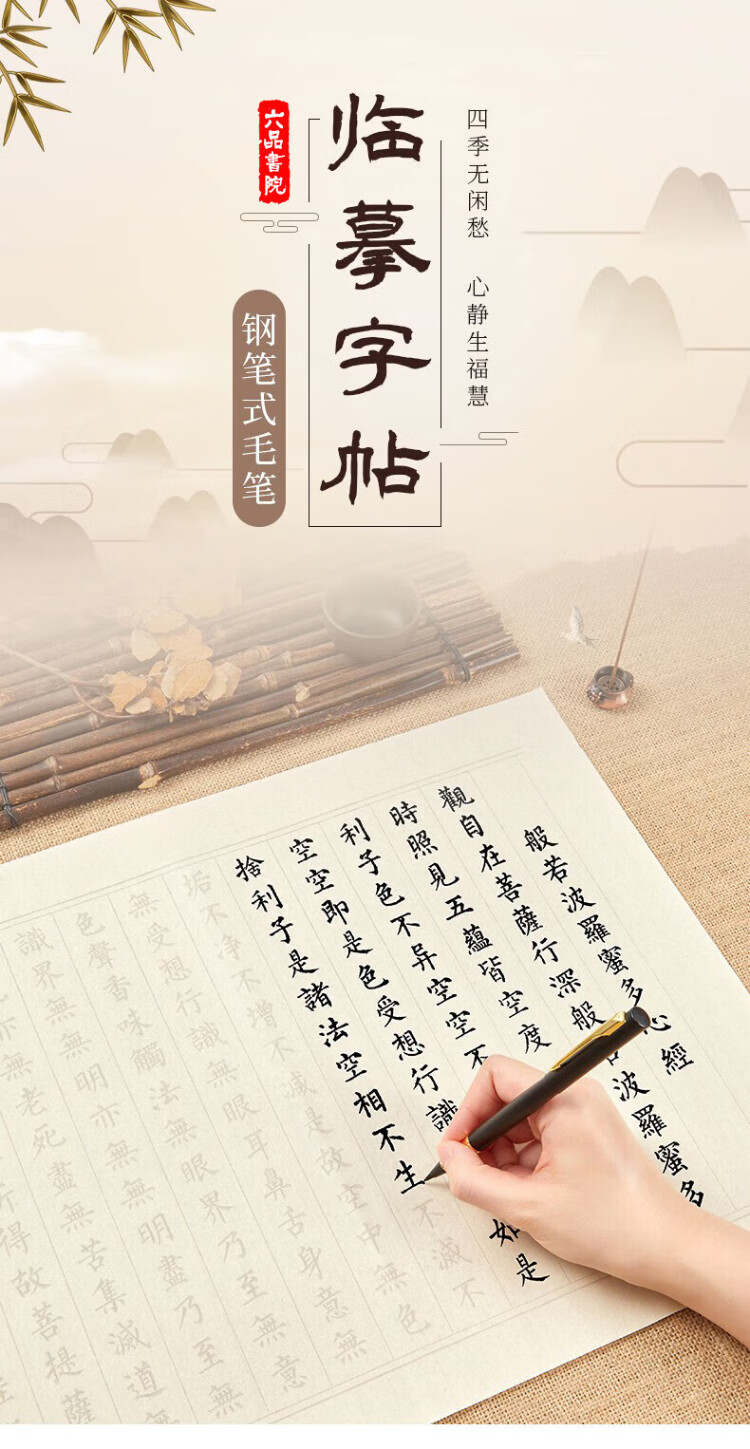 六品書院
临摹字帖
四季无闲愁 心静生福慧
钢笔式毛笔
般若波羅蜜多心經
觀自在菩薩行深般波羅蜜多
時照見五蘊皆空度
利子色不异空空不
空空即是色受想行識如是
捨利子是諸法空相不生不滅不
垢不净不增不減是故空中無色
無受想行識無眼耳鼻舌身意無
色聲香味觸法無眼界乃至無意
識界無無明亦無無明盡乃至無
無老死盡無苦集滅道
得故菩提薩